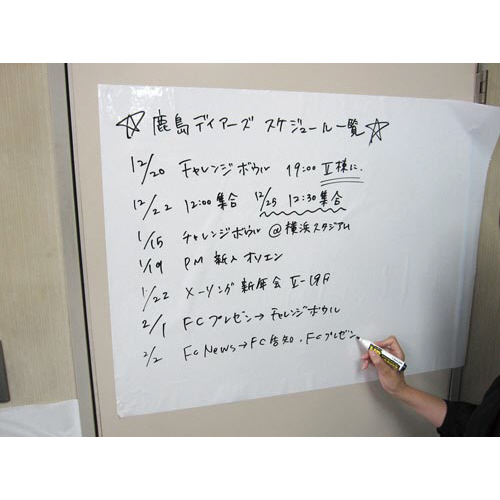 ☆鹿島ディアーズ スケジュール一覧☆
12/20 チャレンジボウル 19:00 II様に.
12/22 12:00集合 12/25 12:30集合
1/15 チャレンジボウル @横浜スタジアム
1/19 PM 新人オリエン
1/22 メーリング新年会
2/1 FCプレゼン→チャレンジボウル
2/2 FCNews→FC告知.FCプレゼン